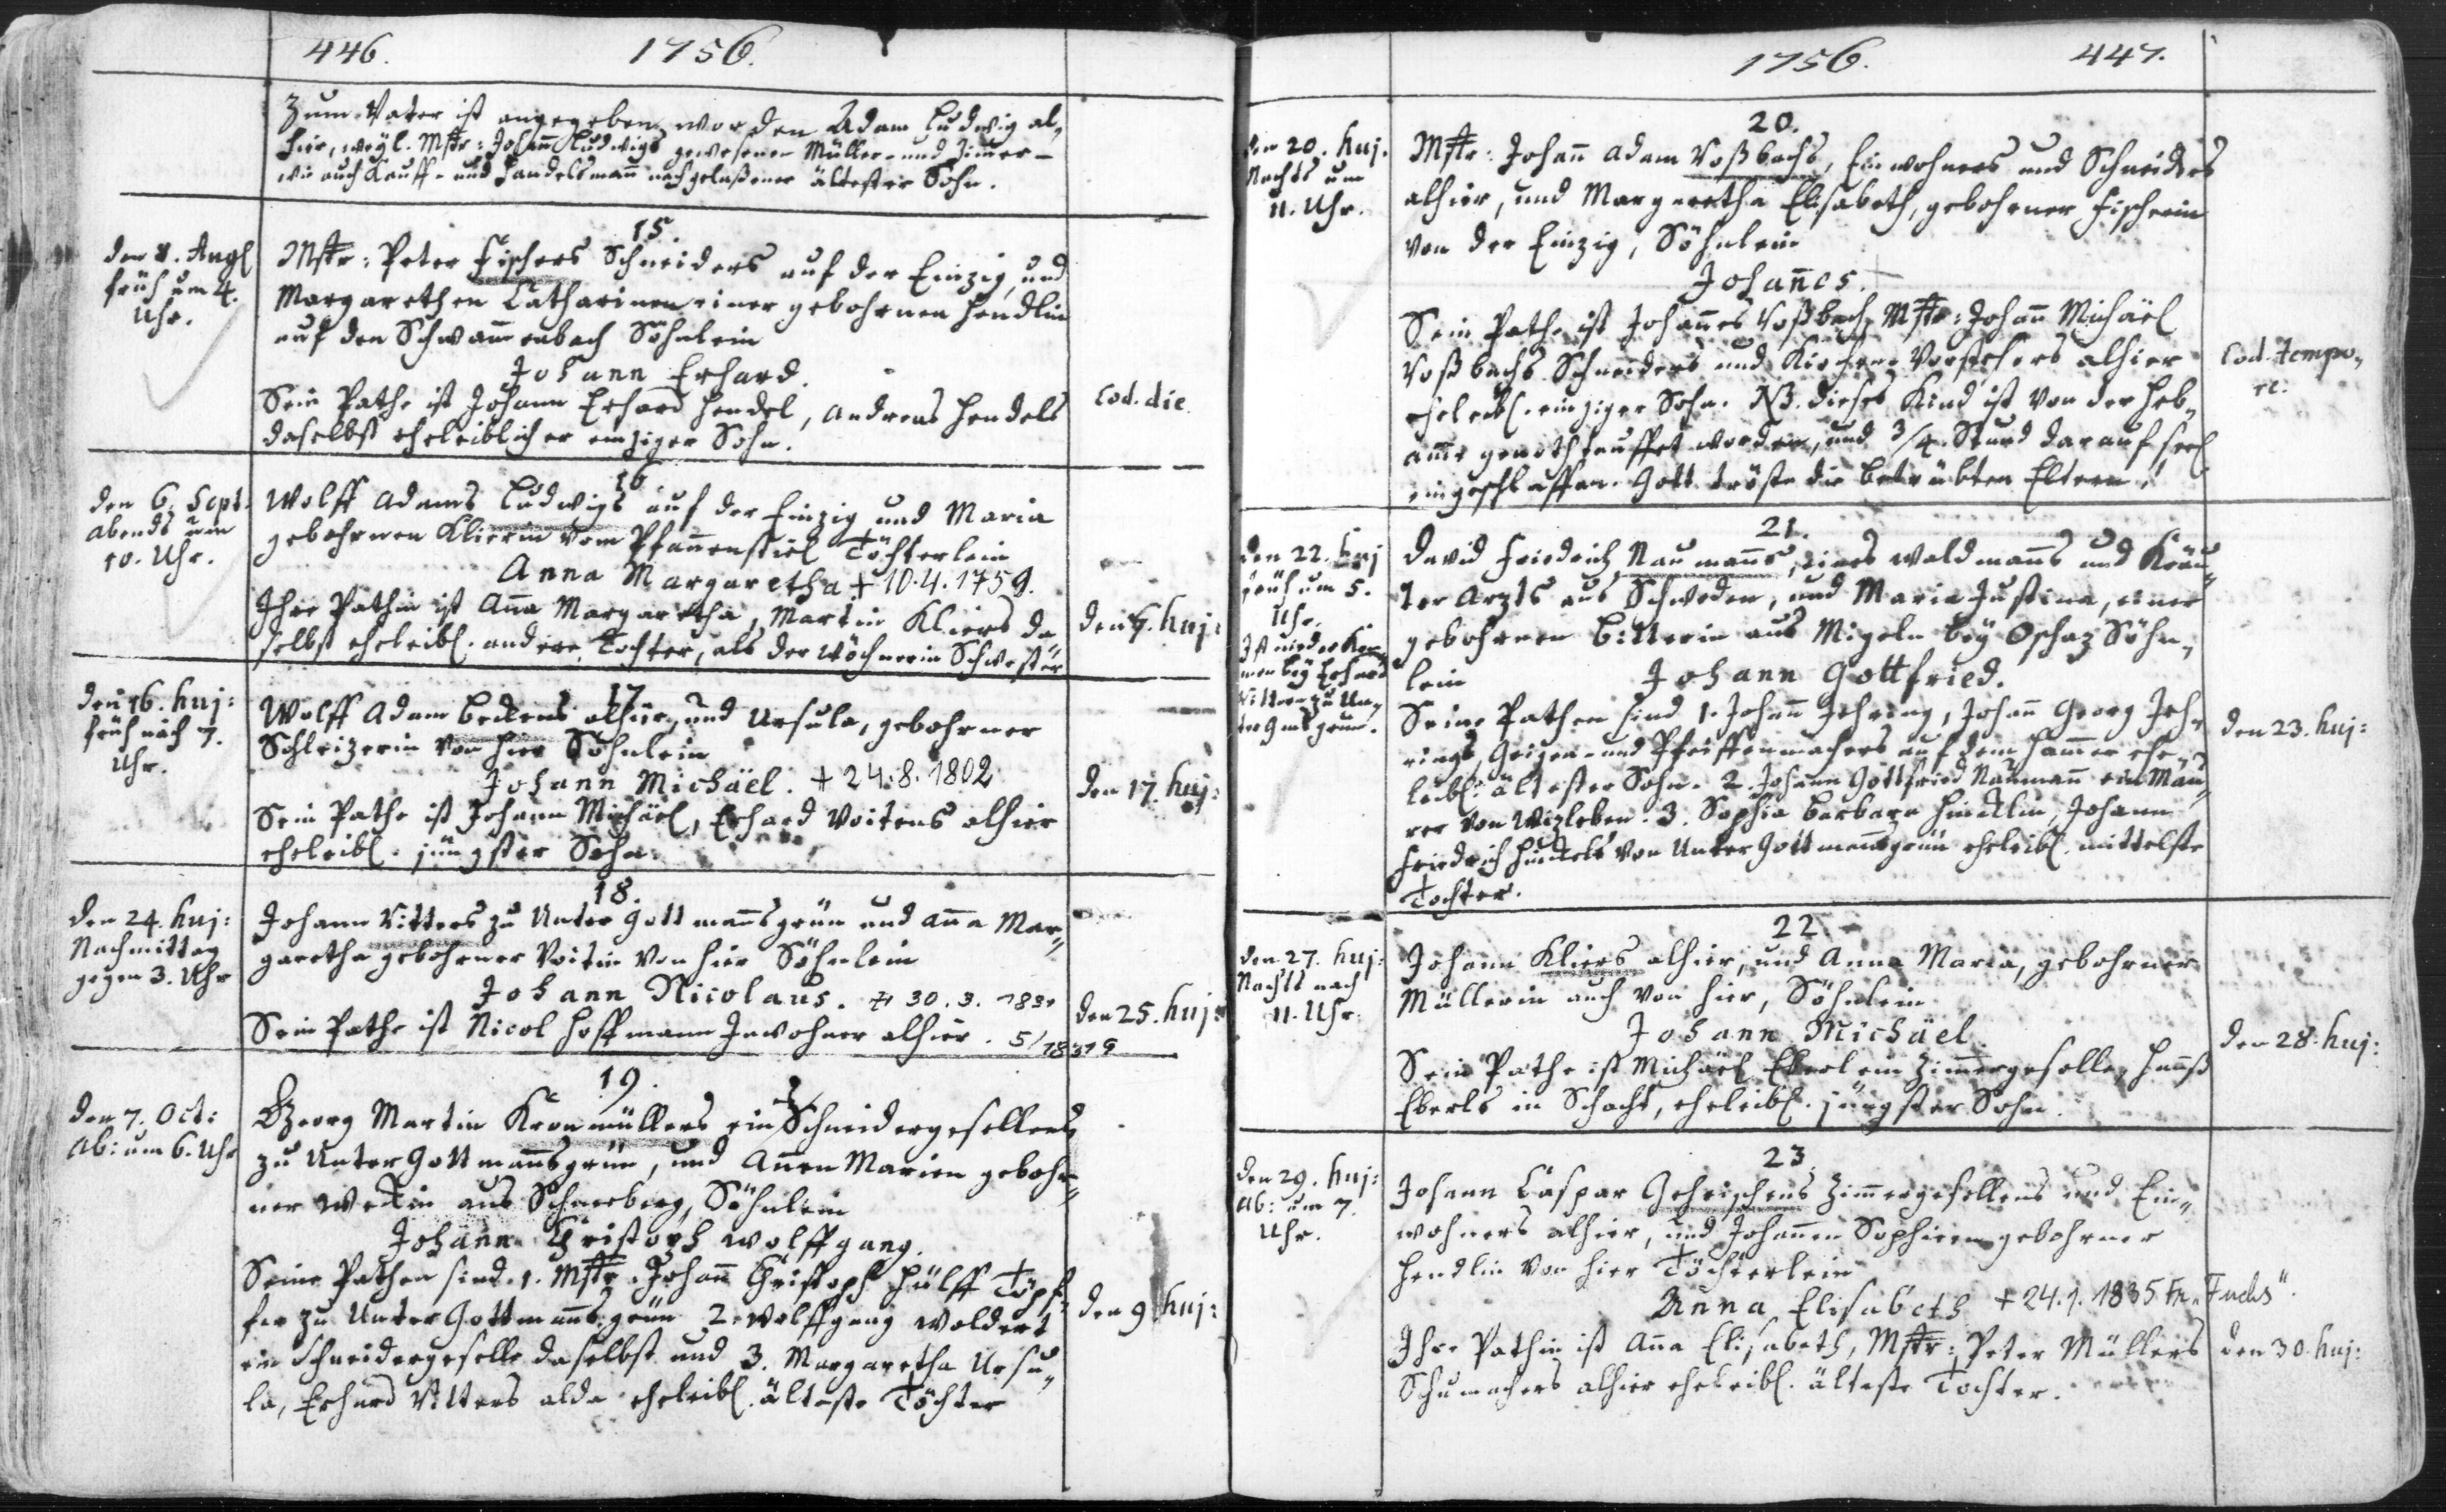 446.
1756.
Zum Vater ist angegeben worden Adam Ludwig al„
hier, weyl. Mstr: Johann Ludwigs gewesenen Müller- und Zimer-
wie auch Kauff- und Handelsmañ nachgelaßener ältester Sohn.
den 8. Aug
früh um 4.
Uhr.
15.
Mstr: Peter Fischers Schneiders auf der Einzig, und
Margarethen Catharinen einer gebohrnen Hendlin
auf den Schwam̃enbach Söhnlein
Johann Erhard.
Sein Pathe ist Johann Erhard Hendel, Andreas Hendels
daselbst eheleiblicher einziger Sohn.
eod. die.
den 6. Sept.
abends um
10. Uhr.
16.
Wolff Adams Ludwigs auf der Einzig und Maria
gebohrnen Klierin vom Pfañenstiel Töchterlein
Anna Margaretha + 10.4.1759.
Ihre Pathin ist Aña Margaretha, Martin Kliers da
selbst eheleibl. andere Tochter, als der Wöchnerin Schwester
den 6. huj:
den 16. huj:
früh nach 7.
Uhr.
17.
Wolff Adam alhier, und Ursula, gebohrner
Schleizerin von hier Söhnlein
Johann Michäel. + 24.8.1802
Sein Pathe ist Johann Michäel, Erhard Voitens alhier
eheleibl. jüngster Sohn.
den 17. huj:
den 24. huj:
Nachmittag
gegen 3. Uhr
18.
Johann Vitters zu Unter Gottmañsgrün und Aña Mar„
garetha gebohrner Voitin von hier Söhnlein
Johann Nicolaus. + 30. 3. 1831
Sein Pathe ist Nicol Hoffmann Inwohner alhier. 5/1831 9
den 25. huj:
den 7. Oct:
Ab: um 6. Uhr
19.
Georg Martin Kronmüllers ein Schneidergesellens
zu Unter Gottmañsgrün, und Annen Marien gebohr„
ner aus Schneeberg, Söhnlein
Johann Christoph Wolffgang.
Seine Pathen sind. 1. Mstr. Johañ Christoph Hülff Töpf„
fer zu Unter Gottmañsgrün 2. Wolffgang Woldert
ein Schneidergeselle daselbst und 3. Margaretha Ursu„
la, Erhard Vitters alda eheleibl. älteste Tochter
den 9. huj:
1756.
447.
den 20. huj.
Nachts um
11. Uhr.
20.
Mstr: Johañ Adam Voßbachs, Einwohners und Schneiders
alhier, und Margaretha Elisabeth, gebohrner Fischerin
von der Einzig, Söhnlein
Johañes. +
Sein Pathe ist Johañes Voßbach, Mstr: Johañ Michäel
Voßbachs Schneiders und Kirchen-Vorstehers alhier
eheleibl. einziger Sohn. NB. dieses Kind ist von der Heb„
am̃e genothtauffet worden, und 3/4. Stund darauf seel
eingeschlaffen. Gott tröste die betrübten Eltern!
eod. tempo„
re.
den 22. huj
früh um 5.
Uhr.
Ist nieder Kom„
men bey Erhard
Vittern zu Un„
ter Gmsgrün.
21.
David Friedrich Naumañs, eines Waldmañs und Kräu„
ter Arzts aus Schweden, und Maria Justina, einer
gebohrnen Bitterin aus Migeln bey Oschaz Söhn„
lein
Johann Gottfried.
Seine Pathen sind 1. Johañ Jehring, Johañ Georg Jeh„
rings, Geigen- und Pfeiffenmachers auf dem Ham̃er ehe„
leibl. ältester Sohn. 2. Johann Gottfried Naumañ ein Mau„
rer von Wizleben. 3. Sophia Barbara Hincklin, Johann
Friedrich Hinckels von Unter Gottmañsgrün eheleibl. mittelste
Tochter.
den 23. huj:
den 27. huj:
Nachts nach
11. Uhr.
22.
Johann Kliers alhier, und Anna Maria, gebohrner
Müllerin auch von hier, Söhnlein
Johann Michäel.
Sein Pathe ist Michäel Eberl ein Zim̃ergeselle, Hañß
Eberls in Schacht, eheleibl. jüngster Sohn.
den 28. huj:
den 29. huj:
Ab: um 7.
Uhr.
23.
Johann Caspar Gehrischens Zim̃ergesellens und Ein„
wohners alhier, und Johannen Sophieen gebohrner
Hendlin von hier Töchterlein
Anna Elisabeth + 24.1.1835 Fr. „Fuchs“.
Ihre Pathin ist Aña Elisabeth, Mstr: Peter Müllers
Schumachers alhier eheleibl. älteste Tochter.
den 30. huj: